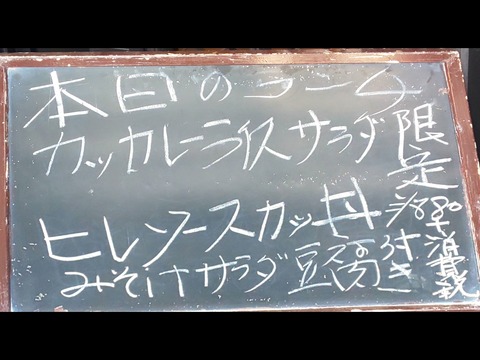 本日の
カツカレーライス サラダ
ヒレソースカツ丼
みそ汁サラダ豆腐付き
限定
880
+消費税